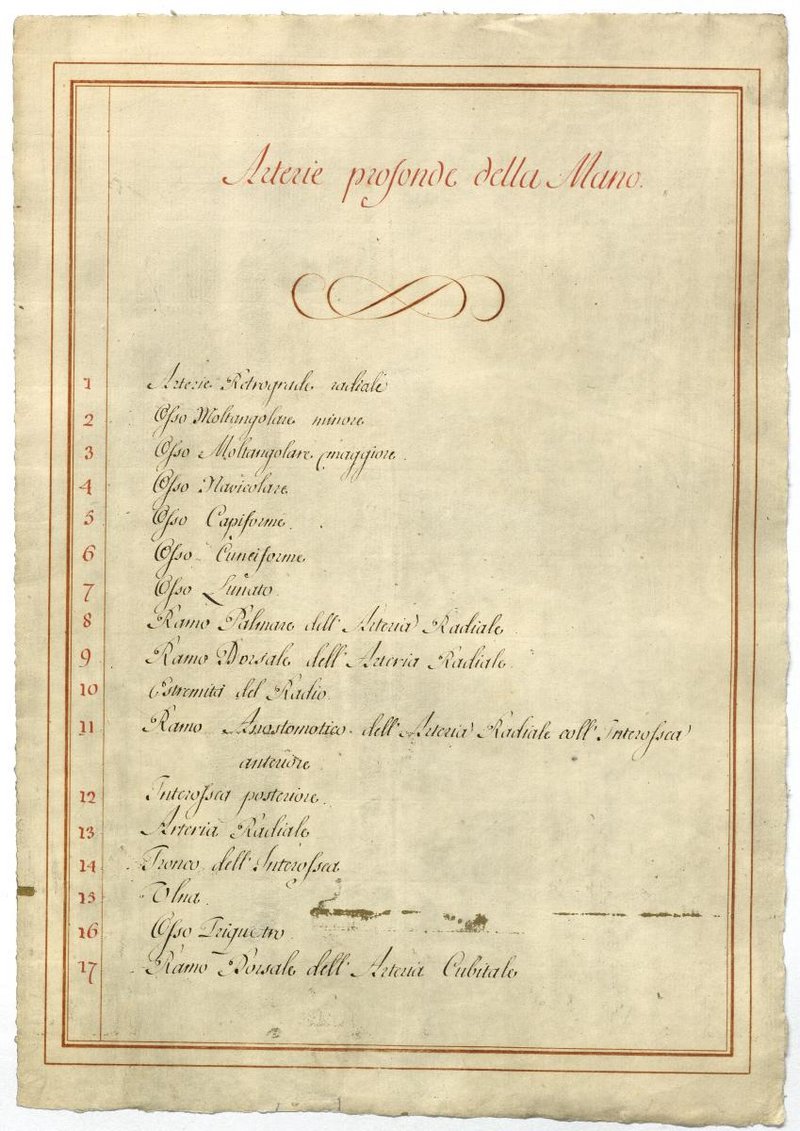 Arterie profonde della Mano.
1 Arterie Retrograde radiali
2 Osso Moltangolare minore
3 Osso Moltangolare maggiore.
4 Osso Navicolare
5 Osso Capiforme.
6 Osso Cuneiforme
7 Osso Lunato
8 Ramo Palmare dell'Arteria Radiale
9 Ramo Dorsale dell'Arteria Radiale
10 Estremità del Radio
11 Ramo Anostomotico dell'Arteria Radiale coll'Interossea
anteriore
12 Interossea posteriore.
13 Arteria Radiale
14 Tronco dell'Interossea
15 Ulna.
16 Osso Triquetro
17 Ramo Dorsale dell'Arteria Cubitale